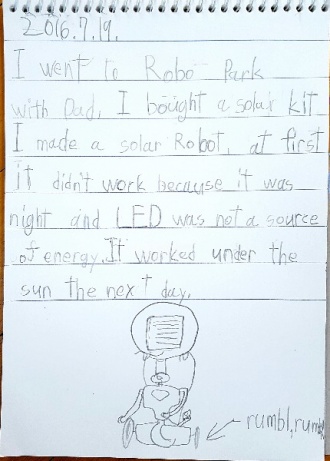 2016.7.19.
I went to Robo Park
with Dad. I bought a solar kit
I made a solar Robot. at first
it didn't work because it was
night and LED was not a source
of energy. It worked under the
sun the next day.
rumbl, rumbl